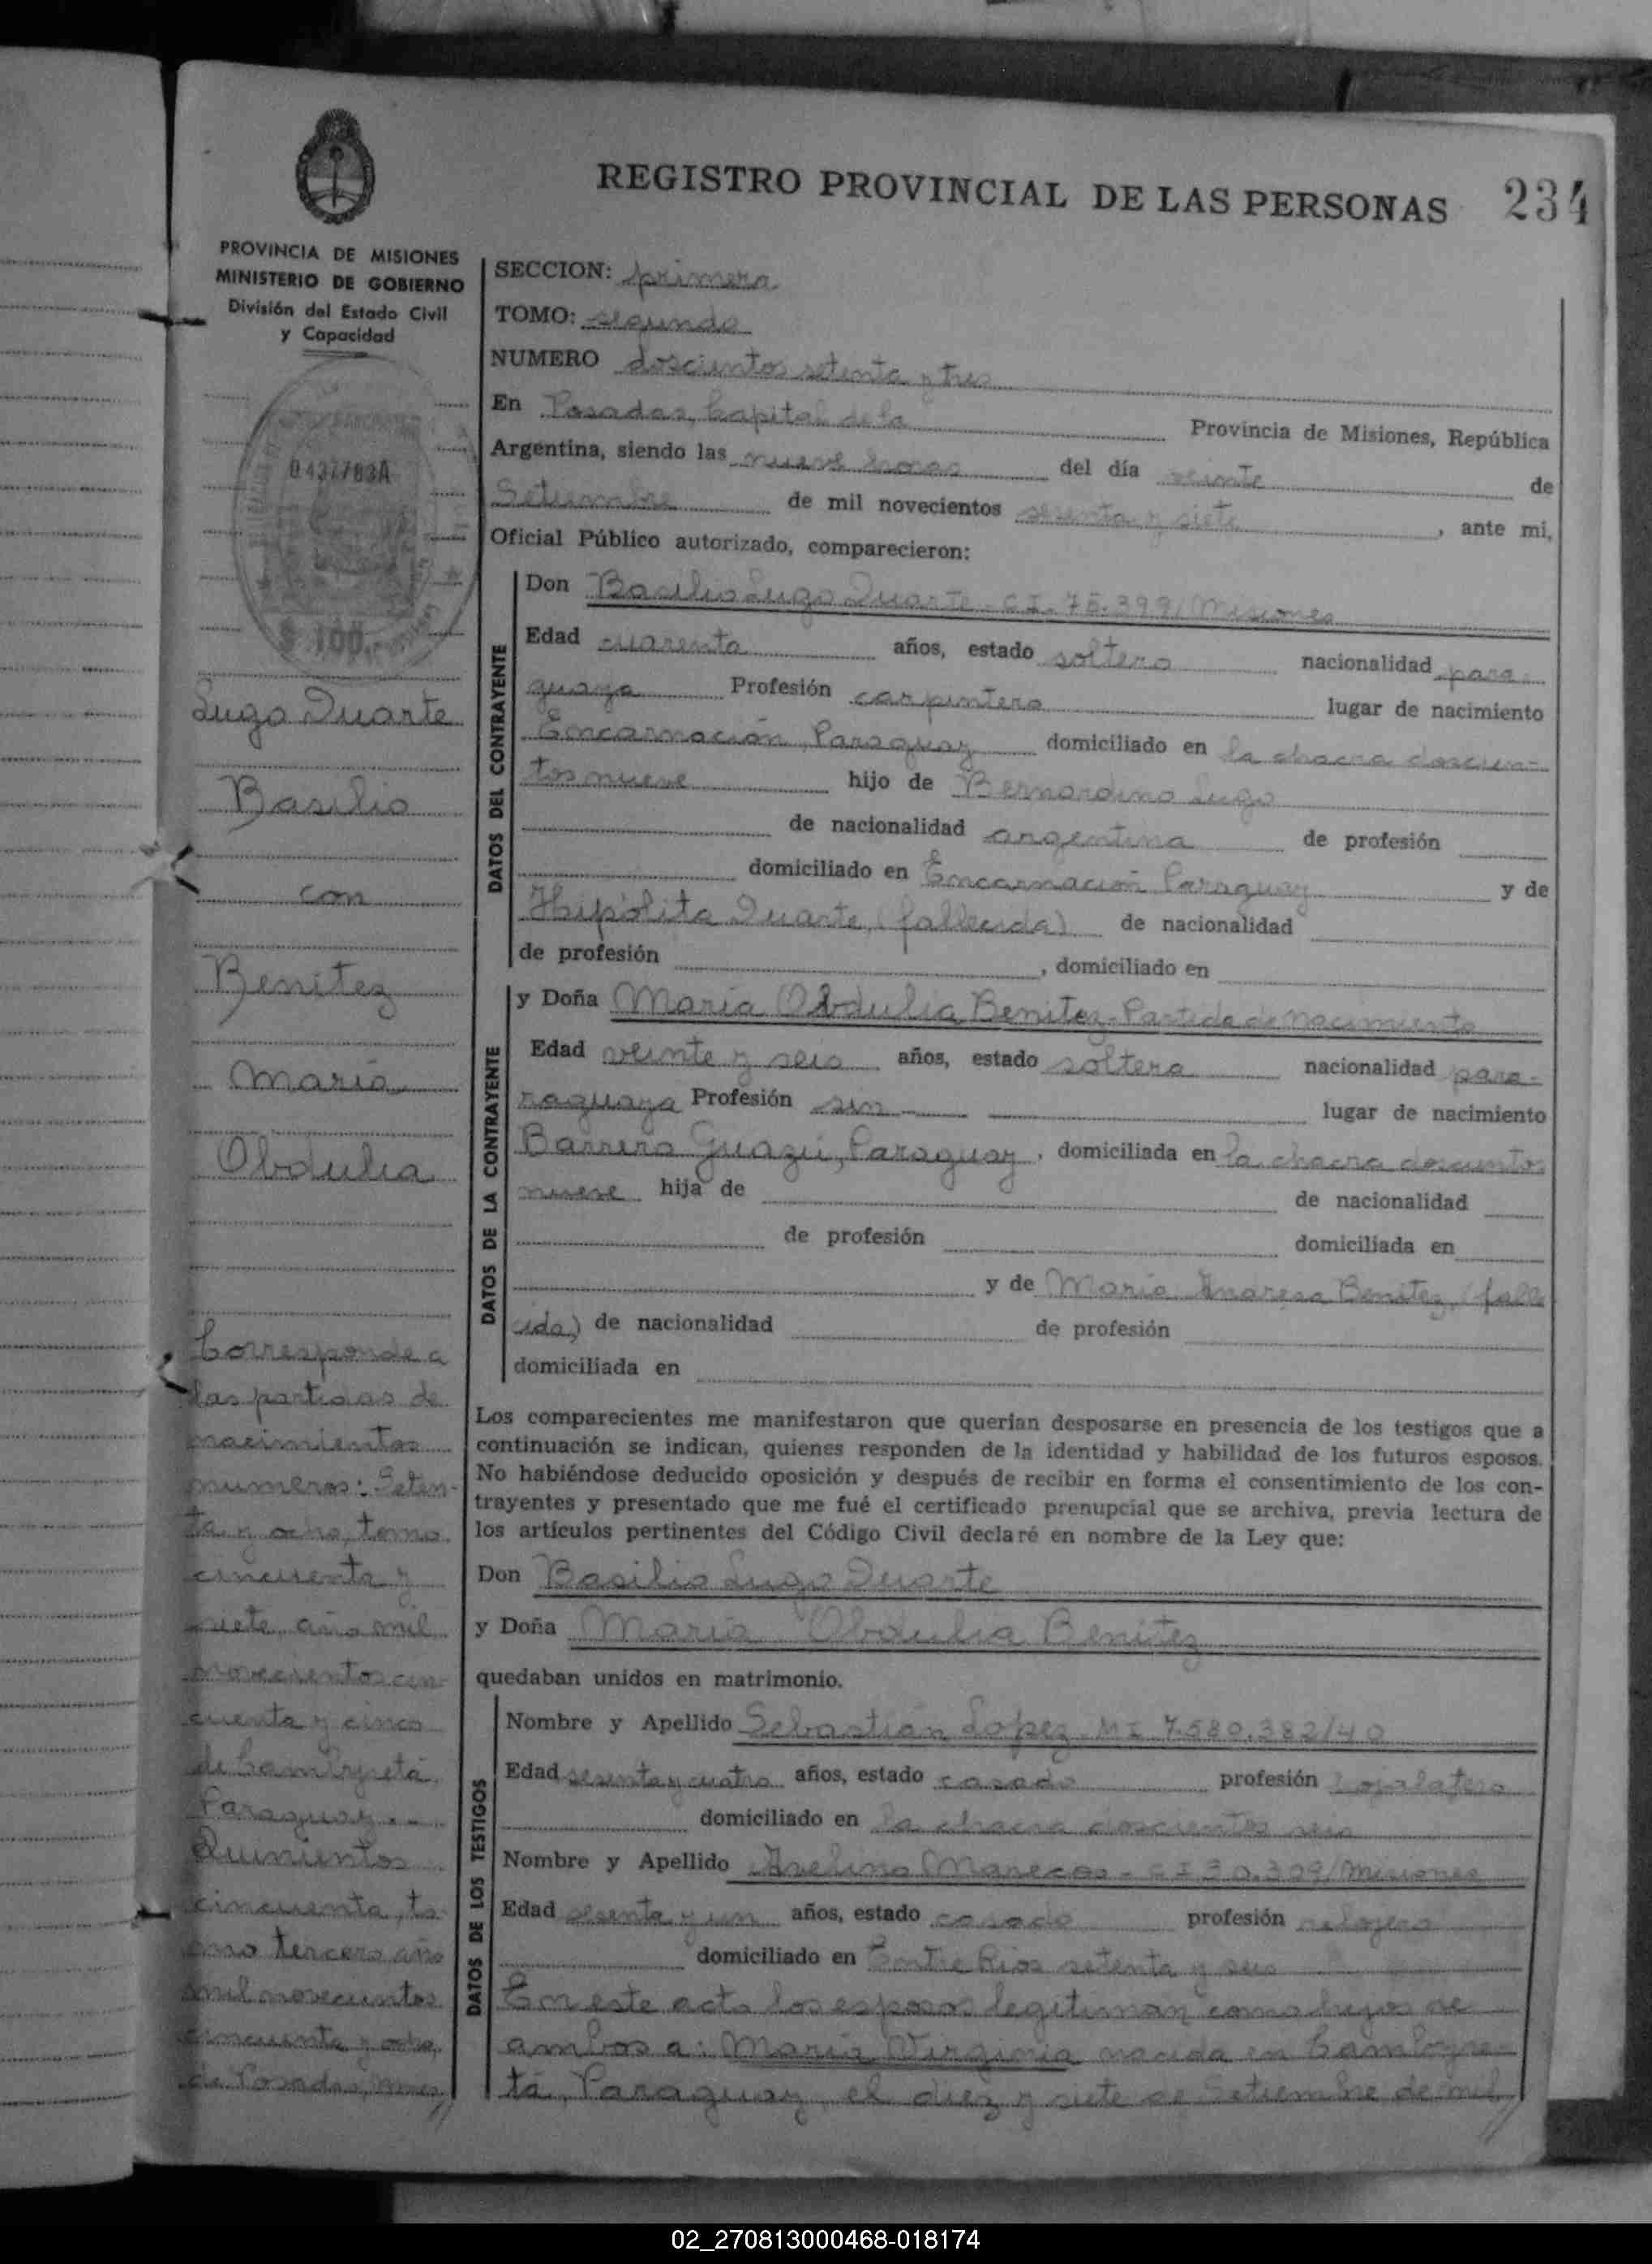 REGISTRO PROVINCIAL DE LAS PERSONAS 234
PROVINCIA DE MISIONES
MINISTERIO DE GOBIERNO
División del Estado Civil
y Capacidad
0437783A
$ 100.-
Lugo Duarte
Basilio
con
Benitez
Maria
Obdulia
Corresponde a
las partidas de
nacimientos
numeros: Seten-
ta y ocho, tomo
cincuenta y
siete, año mil
novecientos cin-
cuenta y cinco
de Cambyretá
Paraguay.-
Quinientos
cincuenta, to
mo tercero año
mil novecientos
cincuenta y ocho,
de Posadas, Mnes,
SECCION: primera
TOMO: segundo
NUMERO doscientos setenta y tres
En Posadas, Capital de la Provincia de Misiones, República
Argentina, siendo las nueve horas del día veinte de
Setiembre de mil novecientos sesenta y siete, ante mi,
Oficial Público autorizado, comparecieron:
DATOS DEL CONTRAYENTE
Don Basilio Lugo Duarte - C.I. 75.399/Misiones
Edad cuarenta años, estado soltero nacionalidad para-
guaya Profesión carpintero lugar de nacimiento
Encarnación, Paraguay domiciliado en la chacra doscien-
tos nueve hijo de Bernardino Lugo
de nacionalidad argentina de profesión
domiciliado en Encarnación Paraguay y de
Hipólita Duarte, (fallecida) de nacionalidad
de profesión , domiciliado en
DATOS DE LA CONTRAYENTE
y Doña Maria Obdulia Benitez - Partida de Nacimiento
Edad veinte y seis años, estado soltera nacionalidad para-
raguaya Profesión sin lugar de nacimiento
Barrero Guazú, Paraguay, domiciliada en la chacra doscientos
nueve hija de de nacionalidad
de profesión domiciliada en
y de Maria Andresa Benitez, (falle
cida) de nacionalidad de profesión
domiciliada en
Los comparecientes me manifestaron que querían desposarse en presencia de los testigos que a
continuación se indican, quienes responden de la identidad y habilidad de los futuros esposos.
No habiéndose deducido oposición y después de recibir en forma el consentimiento de los con-
trayentes y presentado que me fué el certificado prenupcial que se archiva, previa lectura de
los artículos pertinentes del Código Civil declaré en nombre de la Ley que:
Don Basilio Lugo Duarte
y Doña Maria Obdulia Benitez
quedaban unidos en matrimonio.
DATOS DE LOS TESTIGOS
Nombre y Apellido Sebastián Lopez - M I 7.580.382/40
Edad sesenta y cuatro años, estado casado profesión hojalatero
domiciliado en la chacra doscientos seis
Nombre y Apellido Avelino Marecos - C I 30.309/Misiones
Edad sesenta y un años, estado casado profesión relojero
domiciliado en Entre Rios setenta y seis
En este acto los esposos legitiman como hijos de
ambos a: Maria Virginia nacida en Cambyre-
tá, Paraguay, el diez y siete de Setiembre de mil
02_270813000468-018174